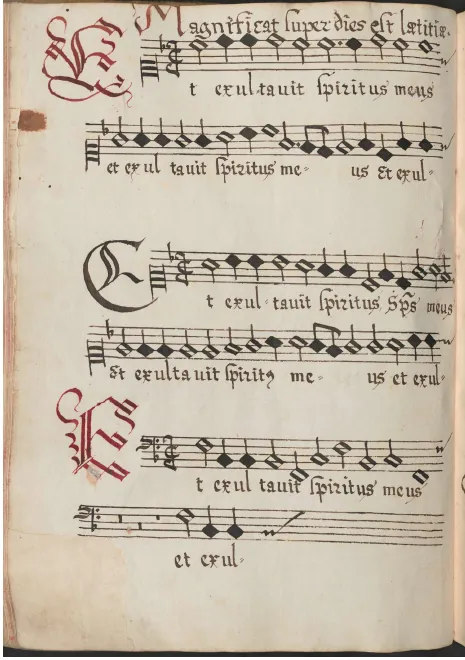 Magnificat super Dies est lætitiæ.
Et exultavit spiritus meus
et exultavit spiritus me- us Et exul-
Et exultavit spiritus Sp̄s meus
Et exultavit spiritꝰ me- us et exul-
Et exultavit spiritus meus
et exul-